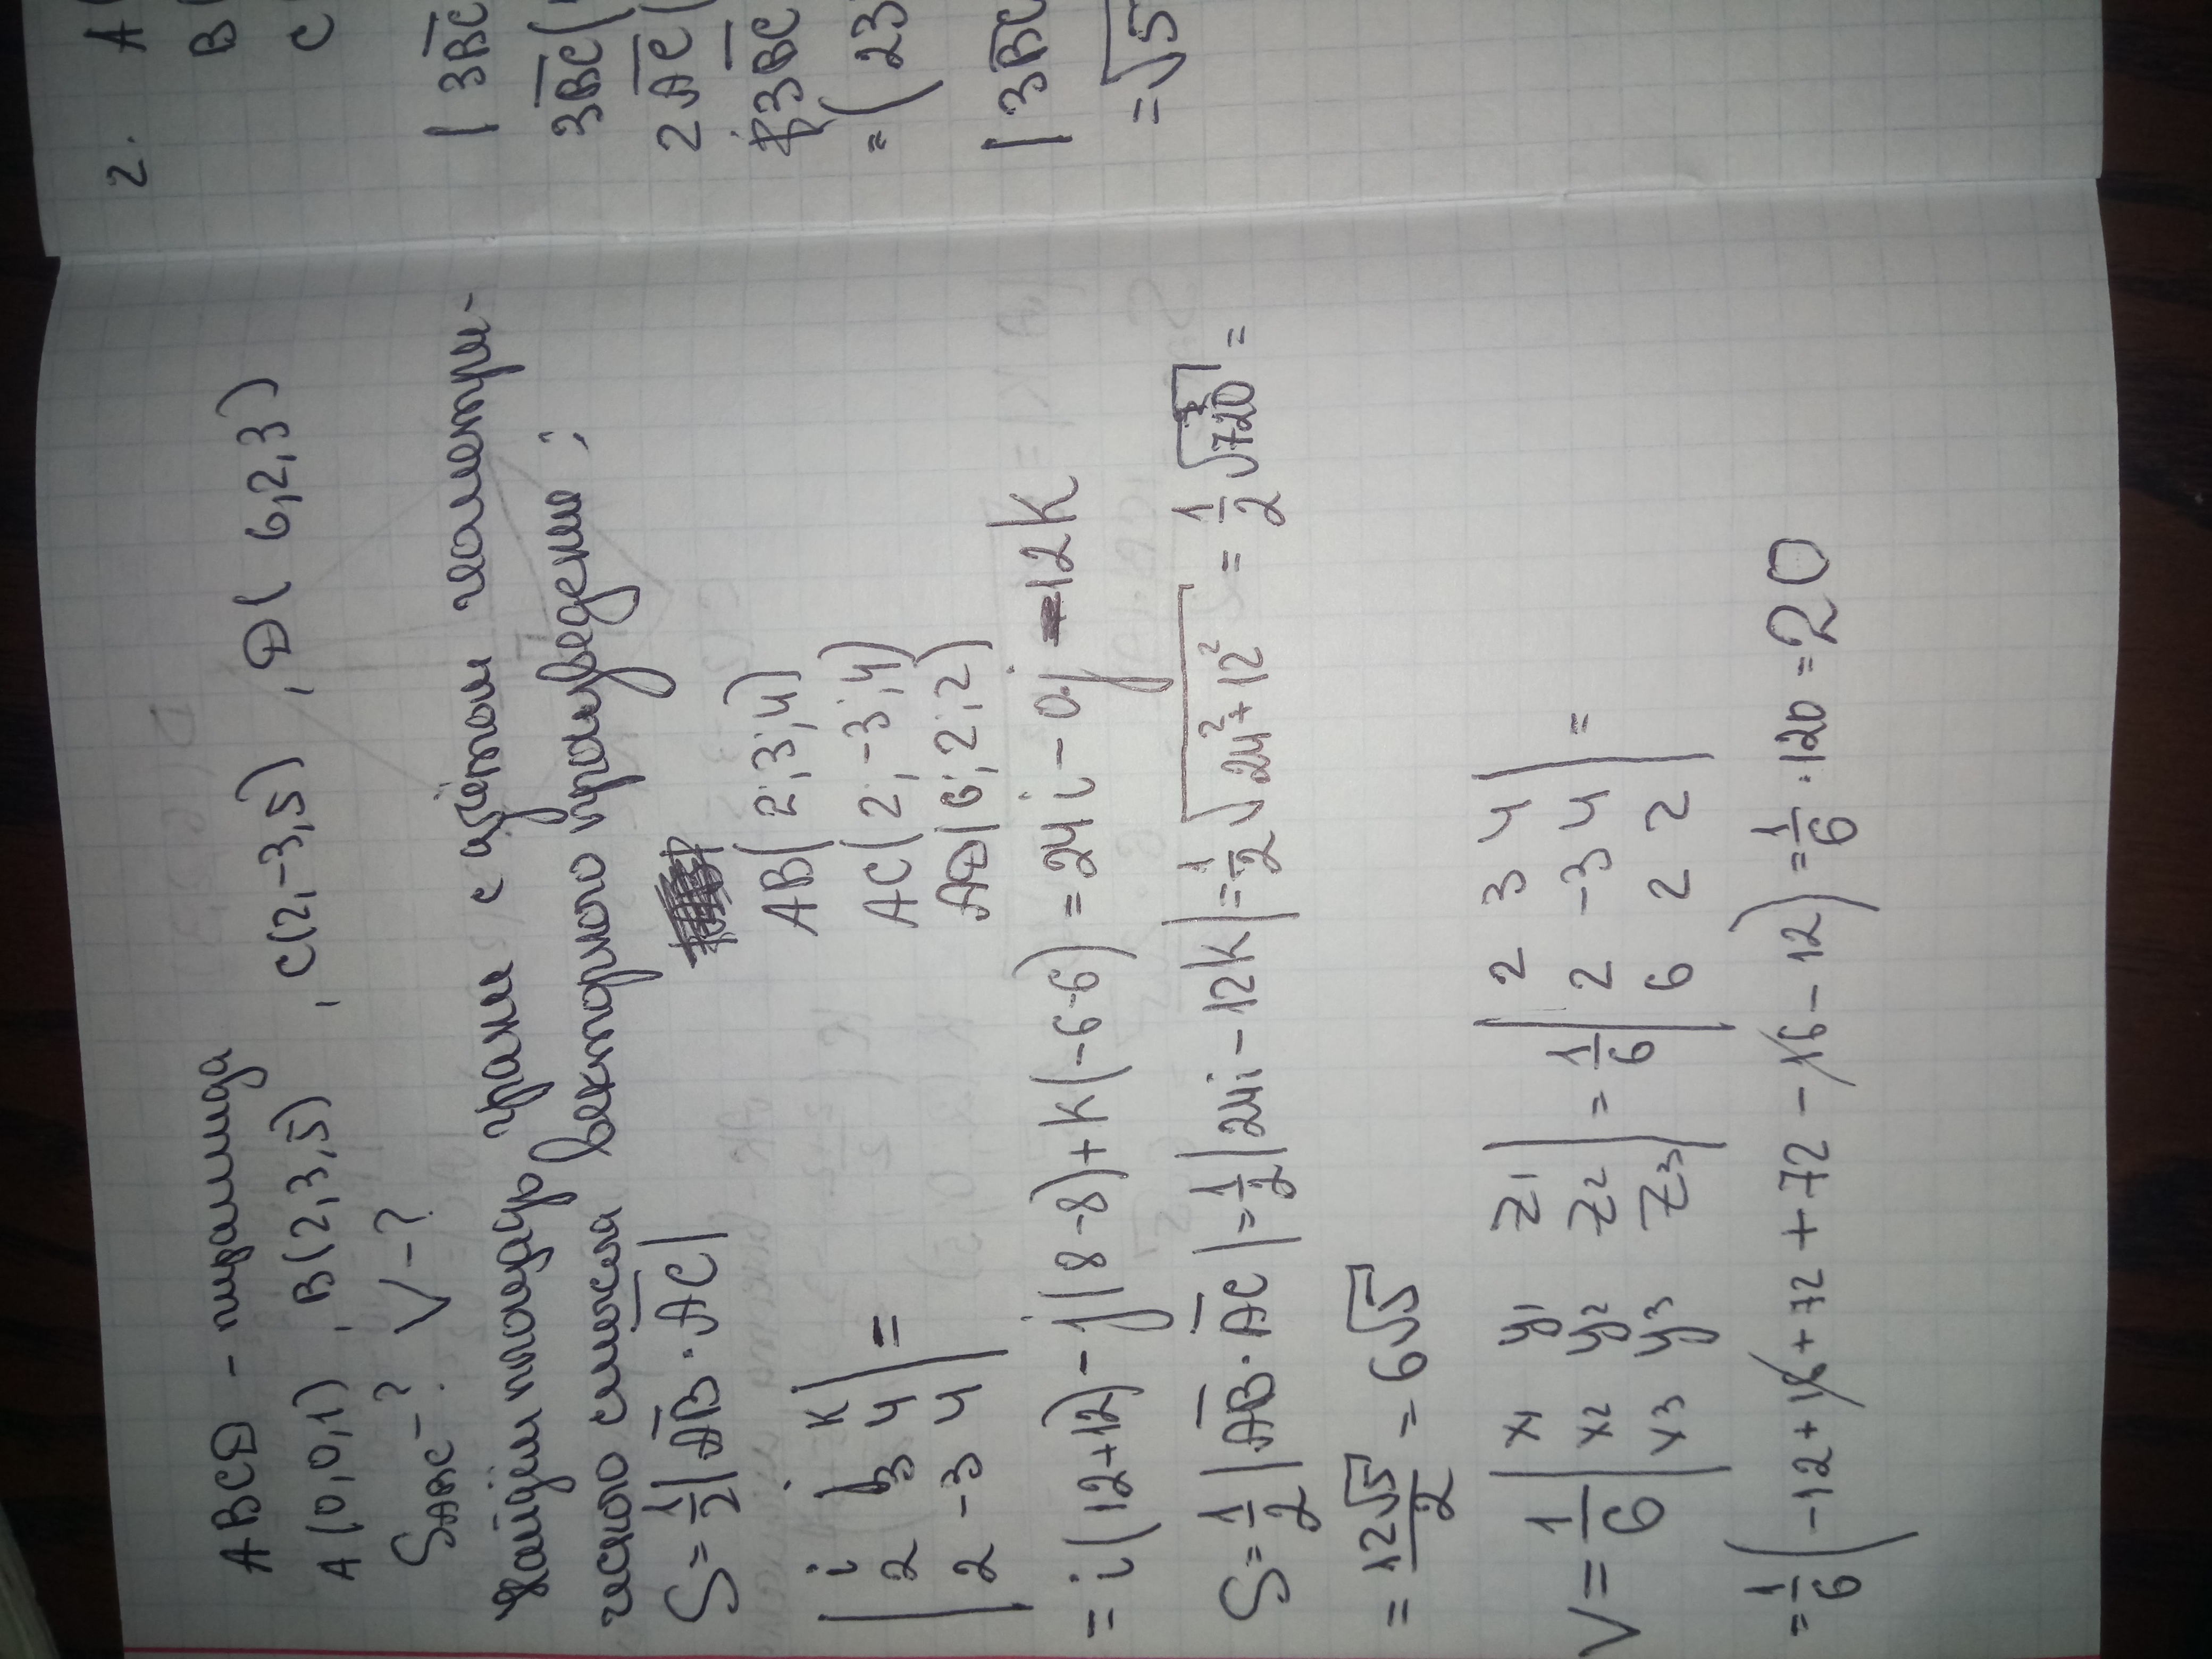 ABCD - пирамида
A(0,0,1), B(2,3,5), C(2,-3,5), D(6,2,3)
S ABC -? V -?
Найдём площадь грани с учётом геометри-
ческого смысла векторного произведения;
S = 1/2 |AB · AC|
AB(2;3;4)
AC(2;-3;4)
AD(6;2;2)
| i j k |
| 2 3 4 | =
| 2 -3 4 |
= i(12+12) - j(8-8) + k(-6-6) = 24i - 0j - 12k
S = 1/2 |AB · AC| = 1/2 |24i - 12k| = 1/2 √24² + 12² = 1/2 √720 =
= 12√5/2 = 6√5
V = 1/6 | x1 y1 z1 | = 1/6 | 2 3 4 | =
| x2 y2 z2 | | 2 -3 4 |
| x3 y3 z3 | | 6 2 2 |
= 1/6 (-12 + 16 + 72 + 72 - 16 - 12) = 1/6 · 120 = 20
2. A(
B(
C(
|3BC
3BC(
2AC(
3BC
= (23
|3BC
= √5